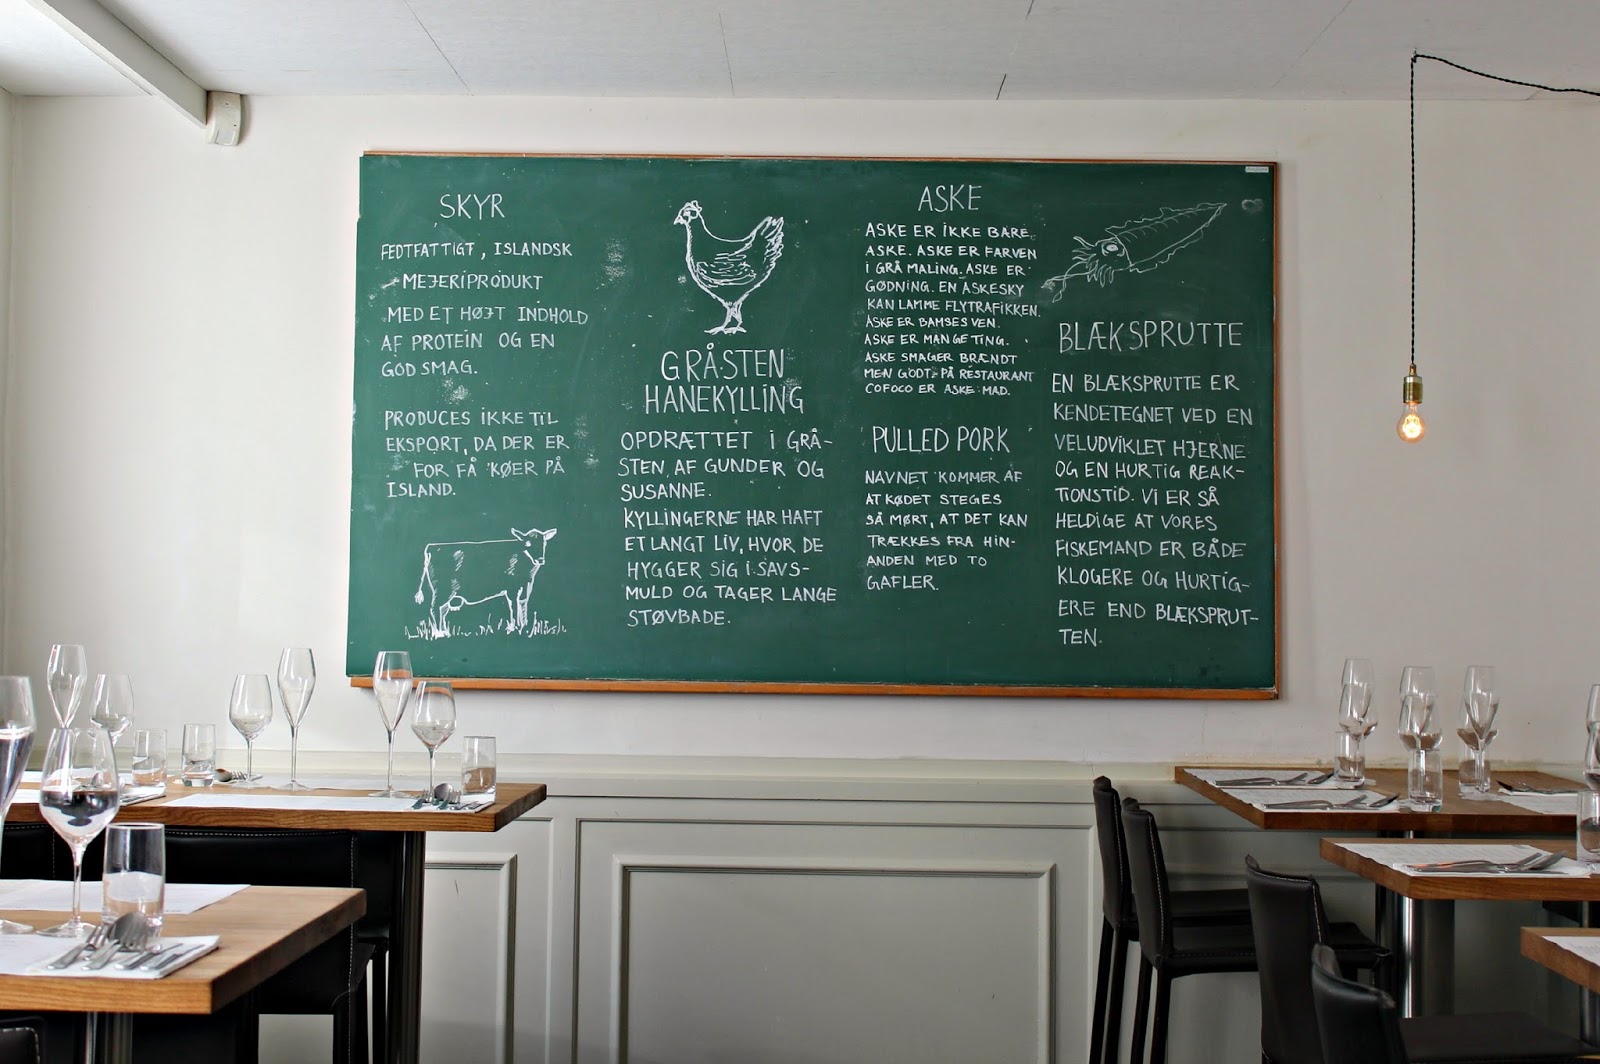 SKYR
FEDTFATTIGT, ISLANDSK
MEJERIPRODUKT
MED ET HØJT INDHOLD
AF PROTEIN OG EN
GOD SMAG.
PRODUCES IKKE TIL
EKSPORT, DA DER ER
FOR FÅ KØER PÅ
ISLAND.
GRÅSTEN
HANEKYLLING
OPDRÆTTET I GRÅ-
STEN AF GUNDER OG
SUSANNE.
KYLLINGERNE HAR HAFT
ET LANGT LIV, HVOR DE
HYGGER SIG I SAVS-
MULD OG TAGER LANGE
STØVBADE.
ASKE
ASKE ER IKKE BARE
ASKE. ASKE ER FARVEN
I GRÅ MALING. ASKE ER
GØDNING. EN ASKESKY
KAN LAMME FLYTRAFIKKEN.
ASKE ER BAMSES VEN.
ASKE ER MANGE TING.
ASKE SMAGER BRÆNDT
MEN GODT. PÅ RESTAURANT
COFOCO ER ASKE MAD.
PULLED PORK
NAVNET KOMMER AF
AT KØDET STEGES
SÅ MØRT, AT DET KAN
TRÆKKES FRA HIN-
ANDEN MED TO
GAFLER.
BLÆKSPRUTTE
EN BLÆKSPRUTTE ER
KENDETEGNET VED EN
VELUDVIKLET HJERNE
OG EN HURTIG REAK-
TIONSTID. VI ER SÅ
HELDIGE AT VORES
FISKEMAND ER BÅDE
KLOGERE OG HURTIG-
ERE END BLÆKSPRUT-
TEN.